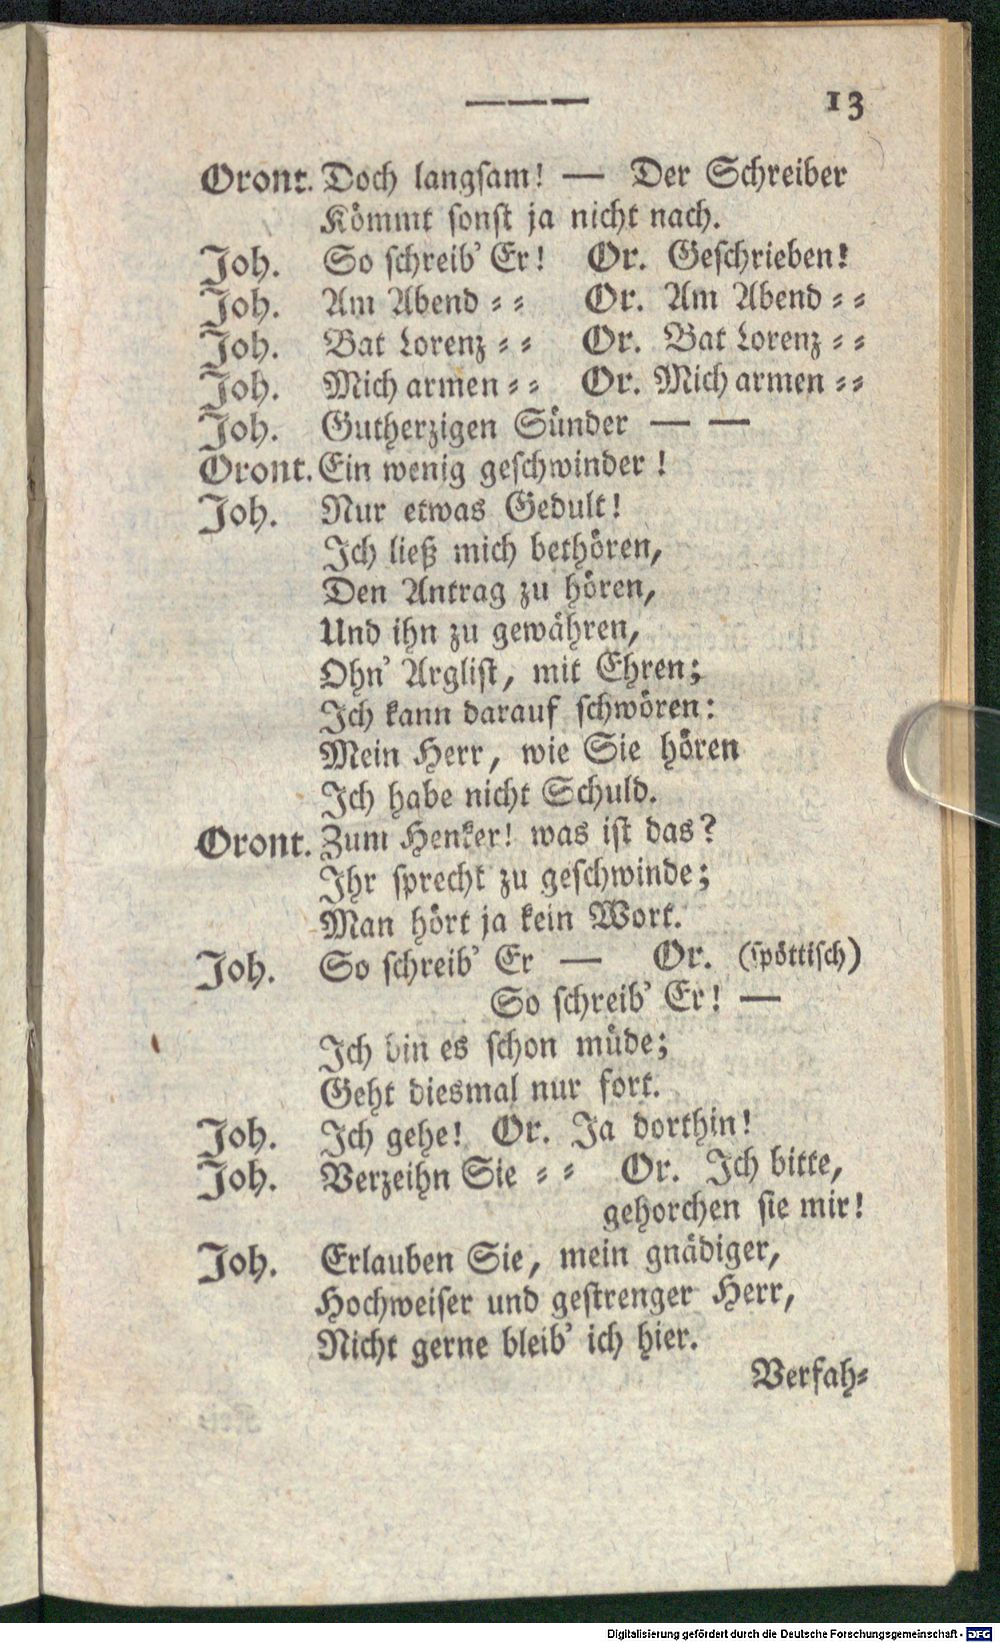 — — — 13
Oront. Doch langsam! — Der Schreiber
Kömmt sonst ja nicht nach.
Joh. So schreib' Er! Or. Geschrieben!
Joh. Am Abend = = Or. Am Abend = =
Joh. Bat Lorenz = = Or. Bat Lorenz = =
Joh. Mich armen = = Or. Mich armen = =
Joh. Gutherzigen Sünder — —
Oront. Ein wenig geschwinder!
Joh. Nur etwas Gedult!
Ich ließ mich bethören,
Den Antrag zu hören,
Und ihn zu gewähren,
Ohn' Arglist, mit Ehren;
Ich kann darauf schwören:
Mein Herr, wie Sie hören
Ich habe nicht Schuld.
Oront. Zum Henker! was ist das?
Ihr sprecht zu geschwinde;
Man hört ja kein Wort.
Joh. So schreib' Er — Or. (spöttisch)
So schreib' Er! —
Ich bin es schon müde;
Geht diesmal nur fort.
Joh. Ich gehe! Or. Ja dorthin!
Joh. Verzeihn Sie = = Or. Ich bitte,
gehorchen sie mir!
Joh. Erlauben Sie, mein gnädiger,
Hochweiser und gestrenger Herr,
Nicht gerne bleib' ich hier.
Verfah=
Digitalisierung gefördert durch die Deutsche Forschungsgemeinschaft - DFG